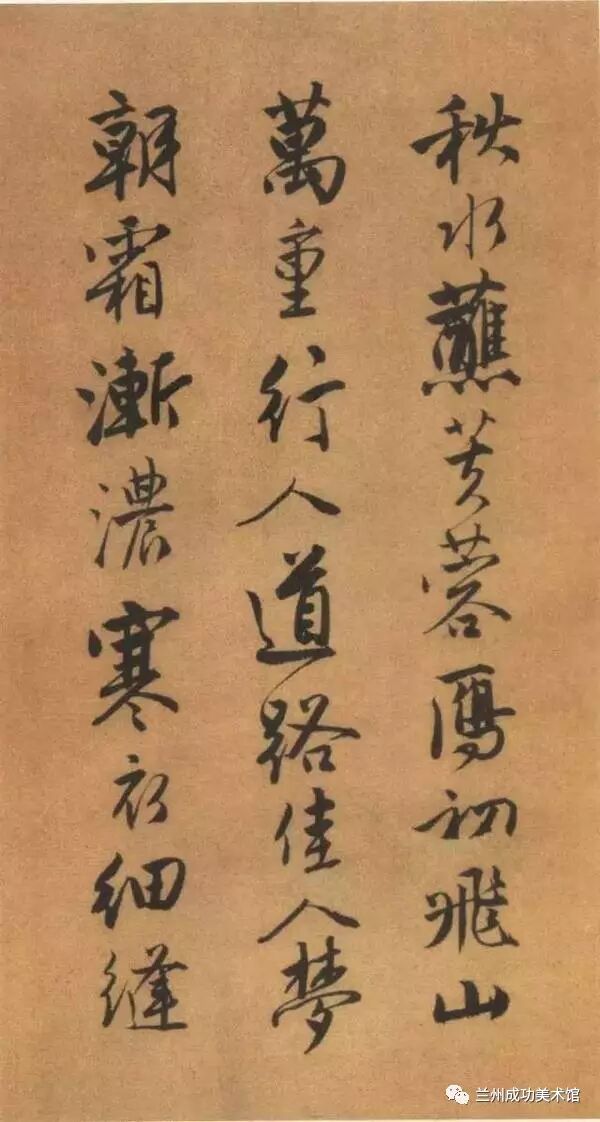 秋水蘸芙蓉鴈初飛山
萬重行人道路佳人夢
朝霜漸濃寒衣細縫
兰州成功美术馆